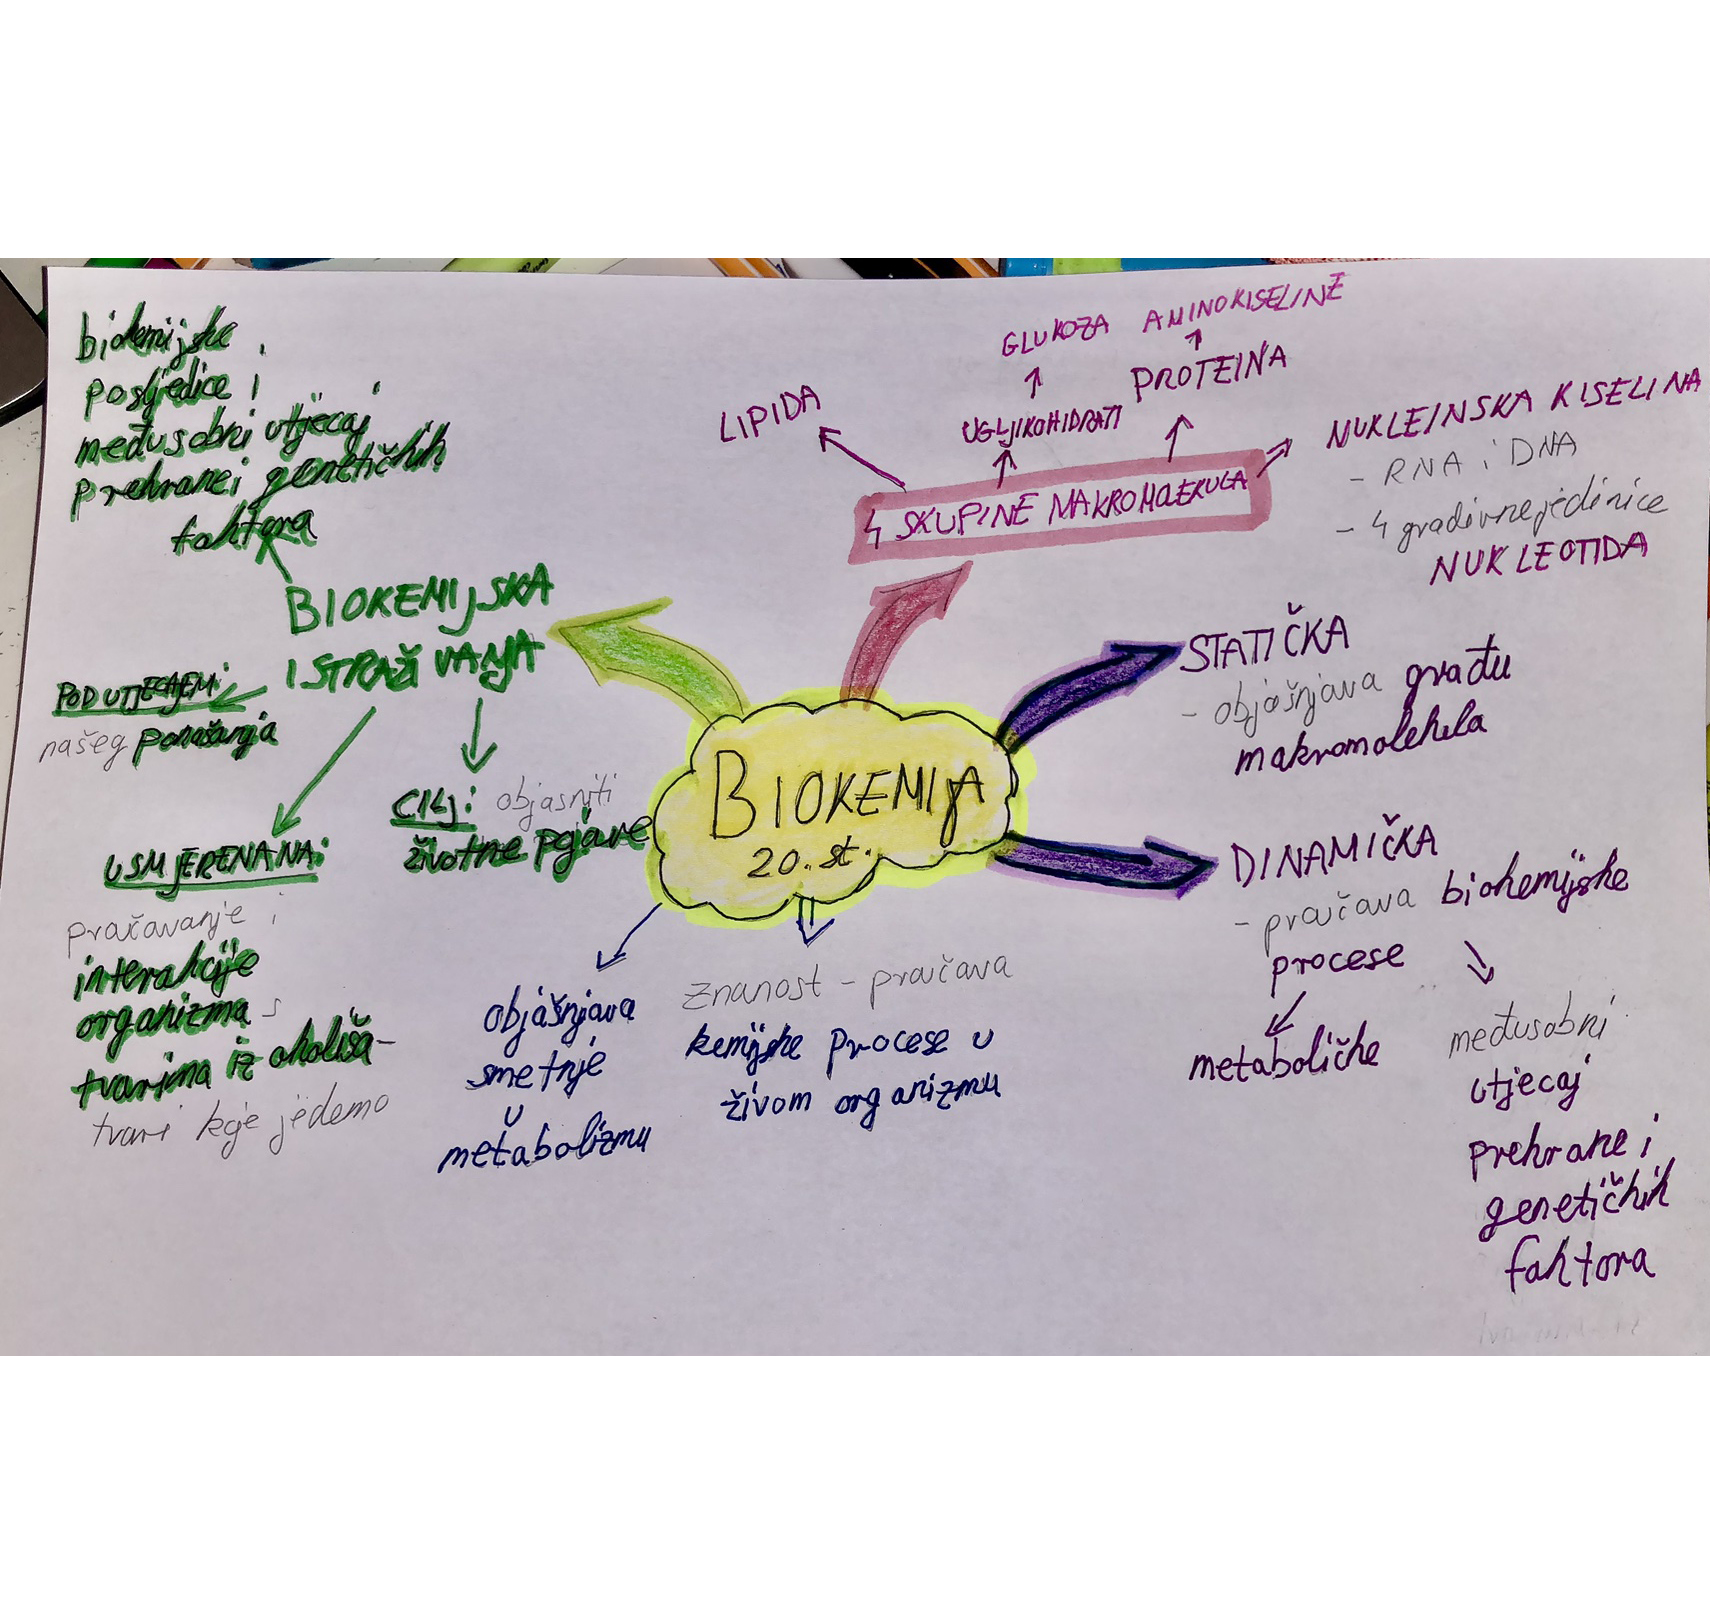 BIOKEMIJA
20. st.
4 SKUPINE MAKROMOLEKULA
LIPIDA
UGLJIKOHIDRATI
GLUKOZA
PROTEINA
AMINOKISELINE
NUKLEINSKA KISELINA
- RNA i DNA
- 4 gradivne jedinice
NUKLEOTIDA
STATIČKA
- objašnjava građu
makromolekula
DINAMIČKA
- pručava biokemijske
procese
metaboličke
međusobni
utjecaj
prehrane i
genetičkih
faktora
znanost - pručava
kemijske procese u
živom organizmu
objašnjava
smetnje
u
metabolizmu
BIOKEMIJSKA
ISTRAŽIVANJA
biokemijske
posljedice i
međusobni utjecaj
prehrane i genetičkih
faktora
POD UTJECAJEM:
našeg ponašanja
USMJERENA NA:
pručavanje i
interakcije
organizma s
tvarima iz okoliša -
tvari koje jedemo
CILJ: objasniti
životne pojave